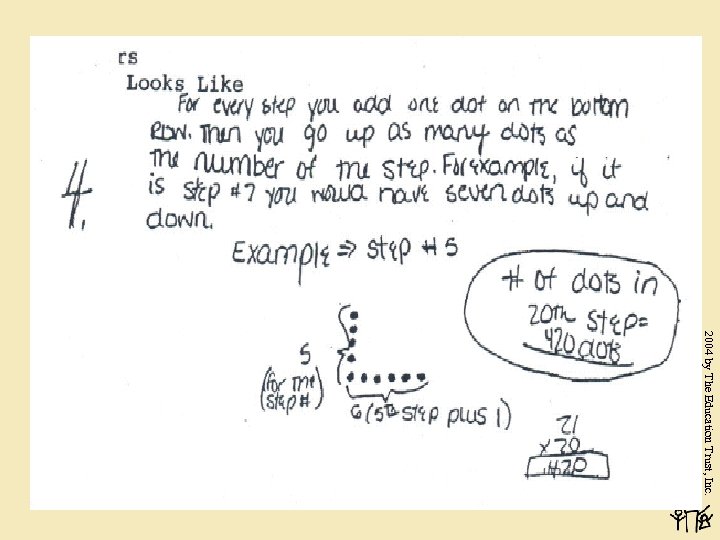 rs
Looks Like
For every step you add one dot on the bottom
row. Then you go up as many dots as
the number of the step. For example, if it
is step #7 you would have seven dots up and
down.
4.
Example ⇒ step # 5
# of dots in
20th step=
420 dots
5
(for the
step #)
6 (5th step plus 1)
21
x 20
420
2004 by The Education Trust, Inc.